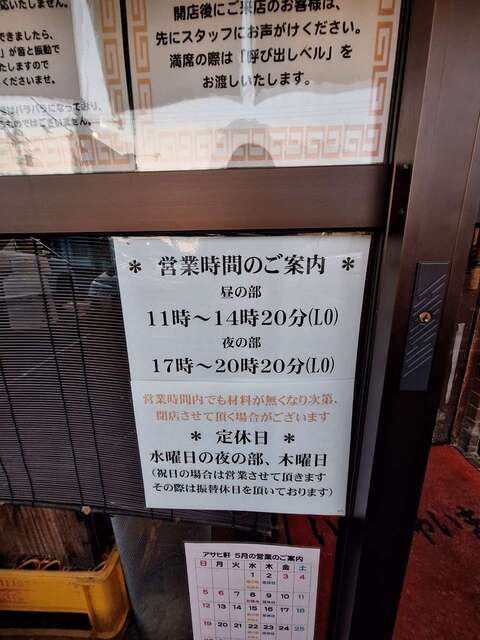 応いたしません。
できましたら、
」が音と振動で
たしますので
くださいませ。
はバラバラになっており、
ものではございません。
開店後にご来店のお客様は、
先にスタッフにお声がけください。
満席の際は「呼び出しベル」を
お渡しいたします。
＊ 営業時間のご案内 ＊
昼の部
11時～14時20分(LO)
夜の部
17時～20時20分(LO)
営業時間内でも材料が無くなり次第、
閉店させて頂く場合がございます
＊ 定休日 ＊
水曜日の夜の部、木曜日
(祝日の場合は営業させて頂きます
その際は振替休日を頂いております)
アサヒ軒 5月の営業のご案内
日 月 火 水 木 金 土
1 2 3 4
5 6 7 8 9 10 11
12 13 14 15 16 17 18
19 20 21 22 23 24 25